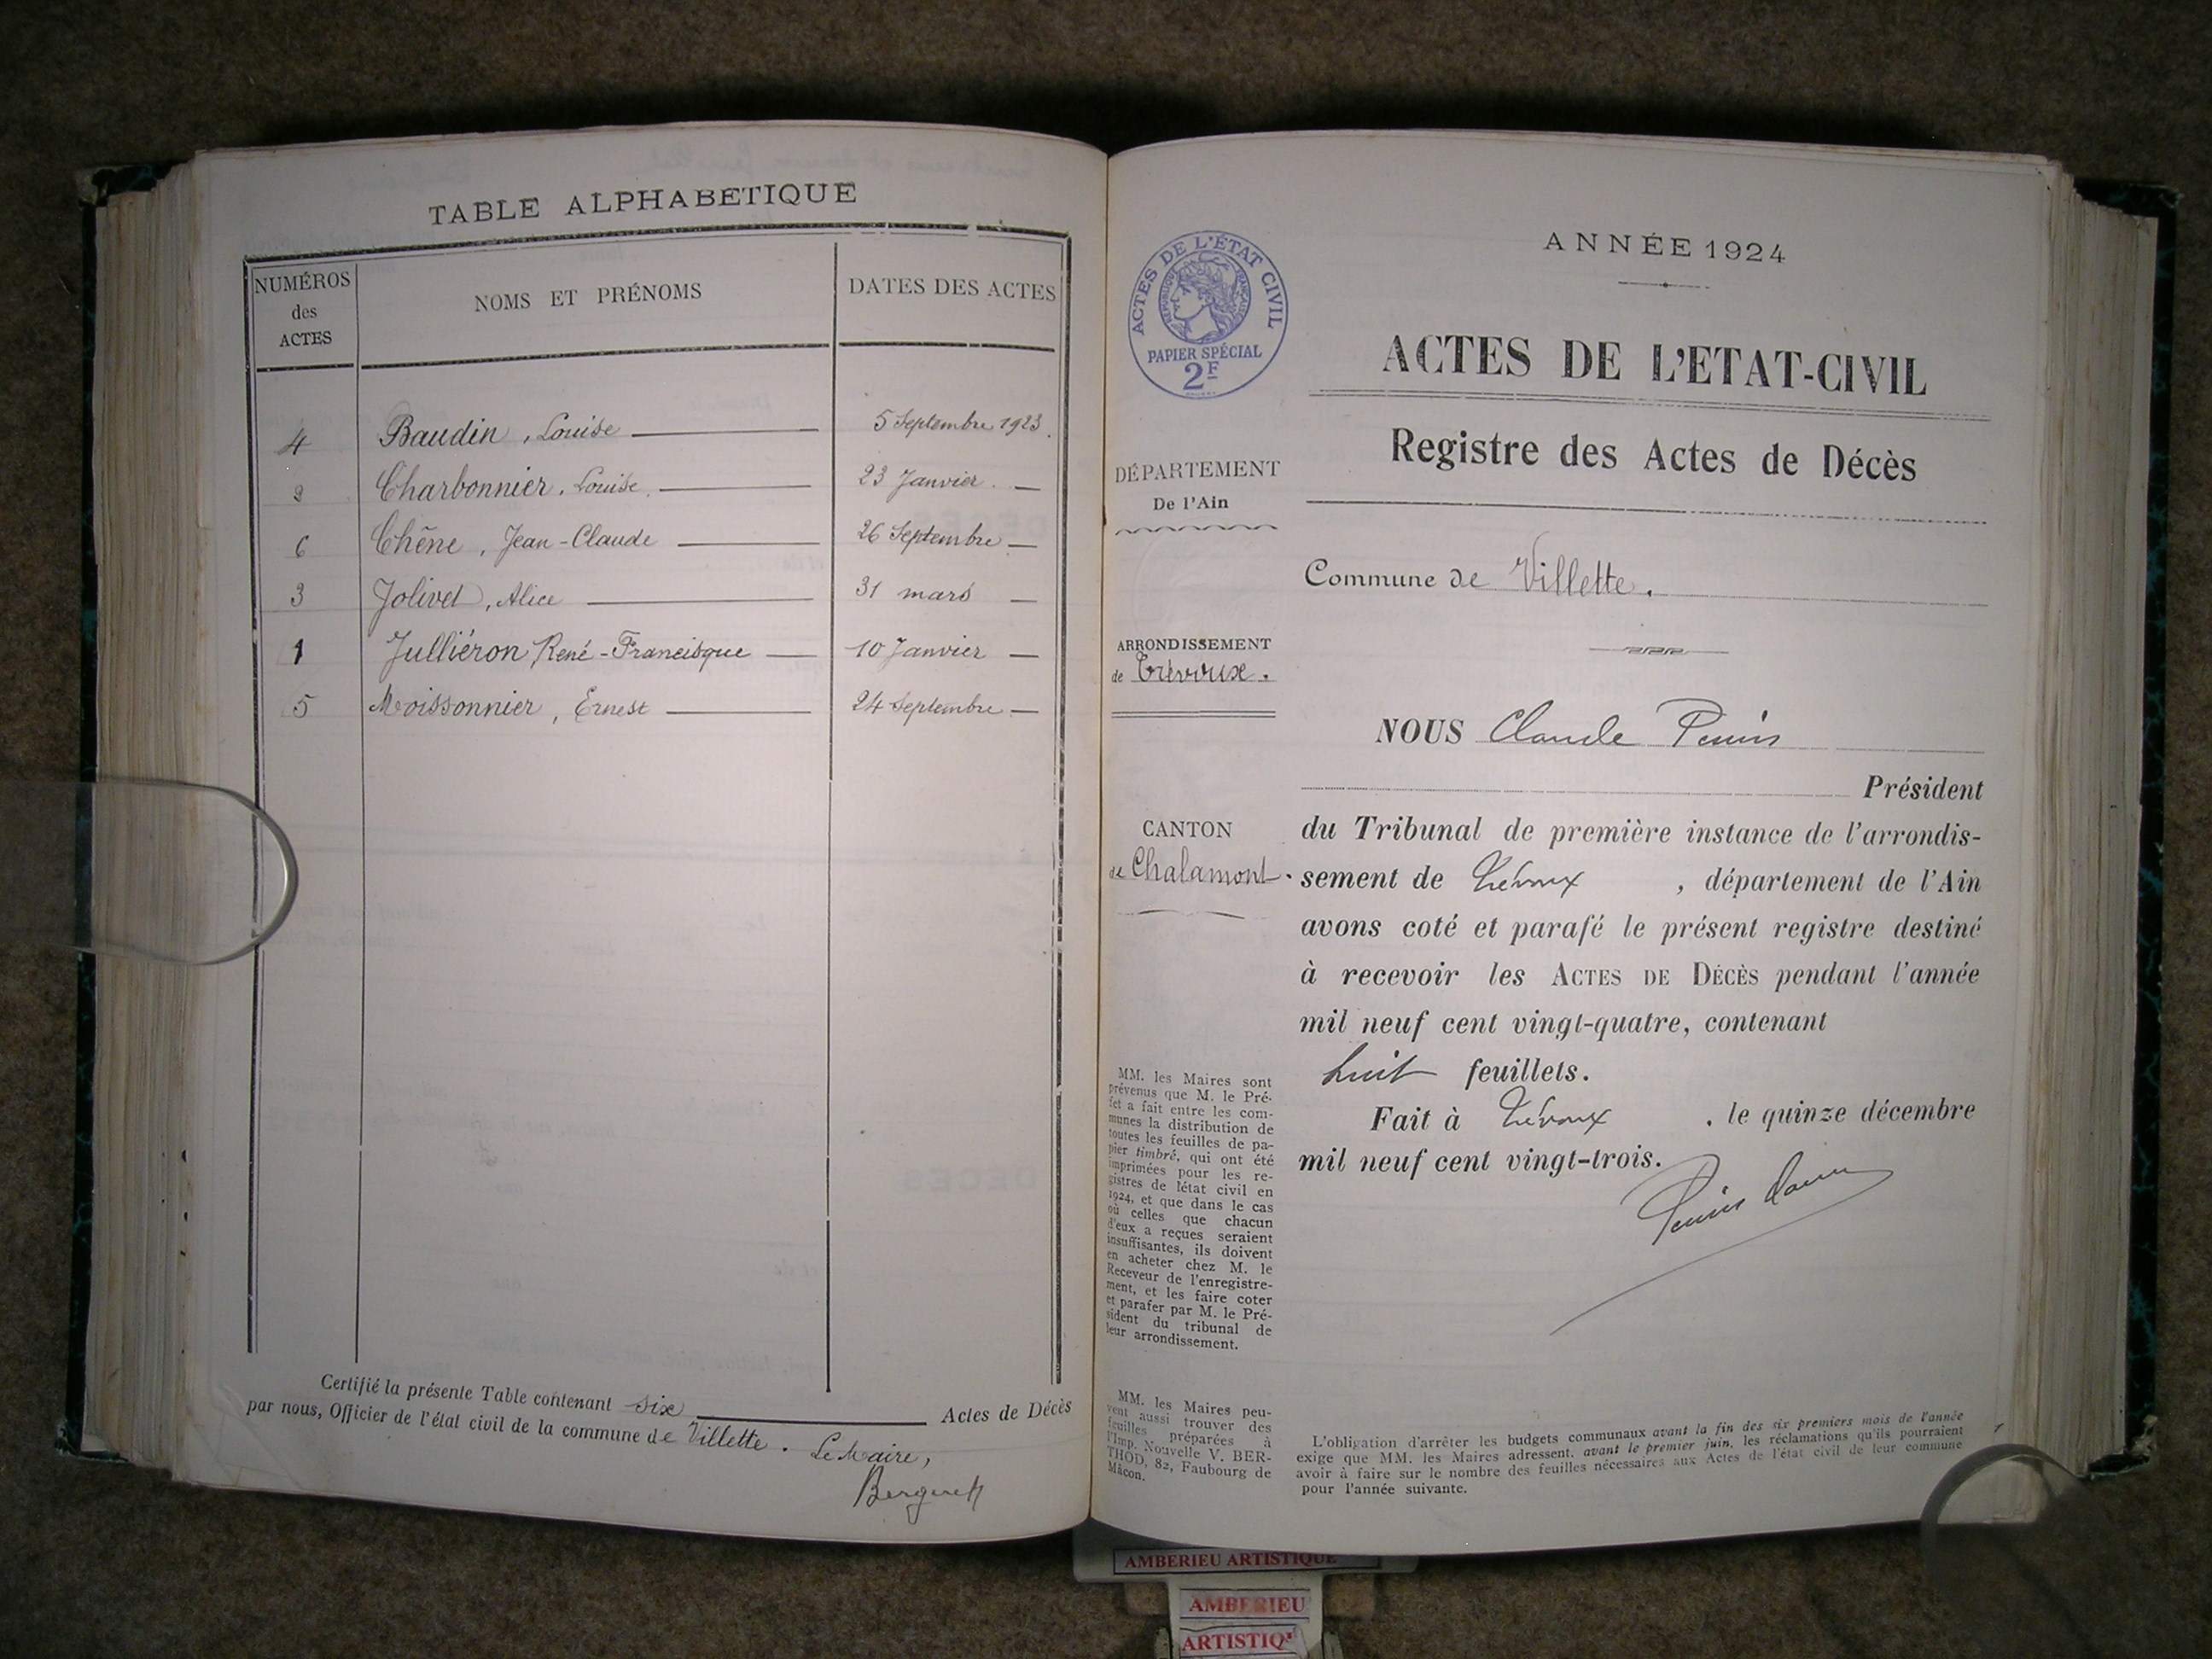 TABLE ALPHABETIQUE
NUMÉROS
des
ACTES
NOMS ET PRÉNOMS
DATES DES ACTES
4 Baudin, Louise 5 Septembre 1923.
2 Charbonnier, Louise. 23 Janvier. —
6 Chêne, Jean-Claude 26 Septembre —
3 Jolivet, Alice 31 mars —
1 Julliéron René-Francisque 10 Janvier —
5 Moissonnier, Ernest 24 Septembre —
Certifié la présente Table contenant six Actes de Décès
par nous, Officier de l'état civil de la commune de Villette.
Le Maire,
ACTES DE L'ÉTAT CIVIL
RÉPUBLIQUE FRANÇAISE
PAPIER SPÉCIAL
2F
DÉPARTEMENT
De l'Ain
ARRONDISSEMENT
de Trévoux.
CANTON
de Chalamont.
MM. les Maires sont
prévenus que M. le Pré-
fet a fait entre les com-
munes la distribution de
toutes les feuilles de pa-
pier timbré, qui ont été
imprimées pour les re-
gistres de l'état civil en
1924, et que dans le cas
où celles que chacun
d'eux a reçues seraient
insuffisantes, ils doivent
en acheter chez M. le
Receveur de l'enregistre-
ment, et les faire coter
et parafer par M. le Pré-
sident du tribunal de
leur arrondissement.
MM. les Maires peu-
vent aussi trouver des
feuilles préparées à
l'Imp. Nouvelle V. BER-
THOD, 82, Faubourg de
Mâcon.
ANNÉE 1924
ACTES DE L'ETAT-CIVIL
Registre des Actes de Décès
Commune de Villette.
NOUS Claude
Président
du Tribunal de première instance de l'arrondis-
sement de Trévoux, département de l'Ain
avons coté et parafé le présent registre destiné
à recevoir les ACTES DE DÉCÈS pendant l'année
mil neuf cent vingt-quatre, contenant
huit feuillets.
Fait à Trévoux, le quinze décembre
mil neuf cent vingt-trois.
L'obligation d'arrêter les budgets communaux avant la fin des six premiers mois de l'année
exige que MM. les Maires adressent, avant le premier juin, les réclamations qu'ils pourraient
avoir à faire sur le nombre des feuilles nécessaires aux Actes de l'état civil de leur commune
pour l'année suivante.
AMBERIEU ARTISTIQUE
AMBERIEU
ARTISTIQ